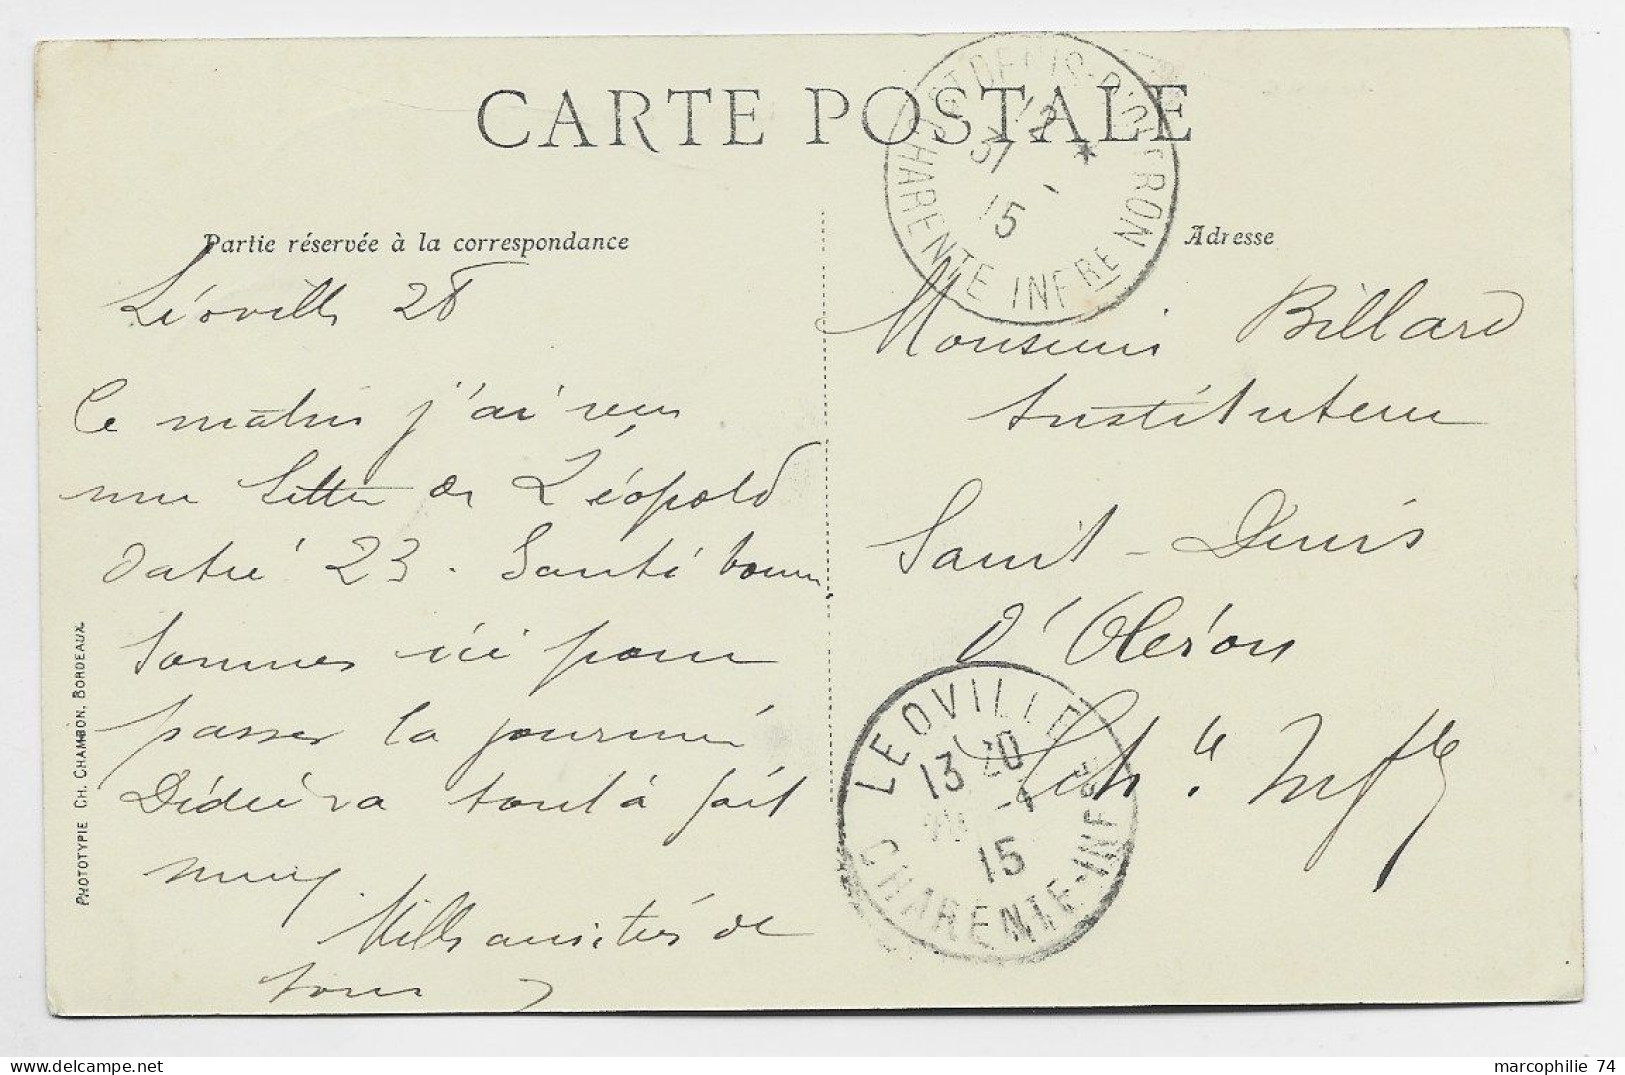 CARTE POSTALE
Partie réservée à la correspondance
Adresse
ST DENIS-D'OLERON
12
31
15
CHARENTE INFRE
Léoville 28
Ce matin j'ai reçu
une lettre de Léopold
datée 23. Santé bonne
Sommes ici pour
passer la journée
Dédé va tout à fait
mieux.
Mille amitiés de
tous
Monsieur Billard
Instituteur
Saint-Denis
d'Oléron
Chte Infre
LEOVILLE
13 20
15
CHARENTE-INFRE
PHOTOTYPIE CH. CHAMBON, BORDEAUX.
marcophilie 74